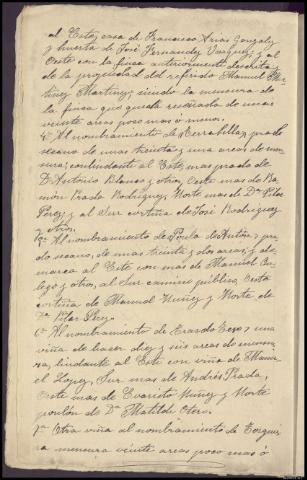 al Este, casa de Francisco Arias Gonzalez
y huerta de José Fernandez Vazquez, y al
Oeste con la finca anteriormente descrita y
de la propiedad del referido Manuel
Martinez, siendo la mensura de
la finca que queda reseñada de unas
veinte areas poco mas ó menos.
4ª Al nombramiento de prado
secano de unas treinta y una areas de men-
sura; confinante al Este, mas prado de
Dn Antonio Blanco y otro, Oeste mas de Ra-
mon Prada Rodriguez, Norte mas de Dª Pilar
Perez y al Sur cortiña de José Rodriguez
y otros.
5ª Al nombramiento de pra-
do secano, de mas treinta y dos areas, y de-
marca al Este con mas de Manuel
y otros, al Sur camino público, Oeste
cortiña de Manuel Nuñez y Norte de
Dª Pilar Perez.
6ª Al nombramiento de una
viña de hacer diez y seis areas de mensu-
ra, lindante al Este con viña de Manu-
el Lopez, Sur mas de Andrés Prada,
Oeste mas de Evaristo Nuñez y Norte
de Dª Matilde Otero.
7ª Otra viña al nombramiento de
mensura veinte areas poco mas ó